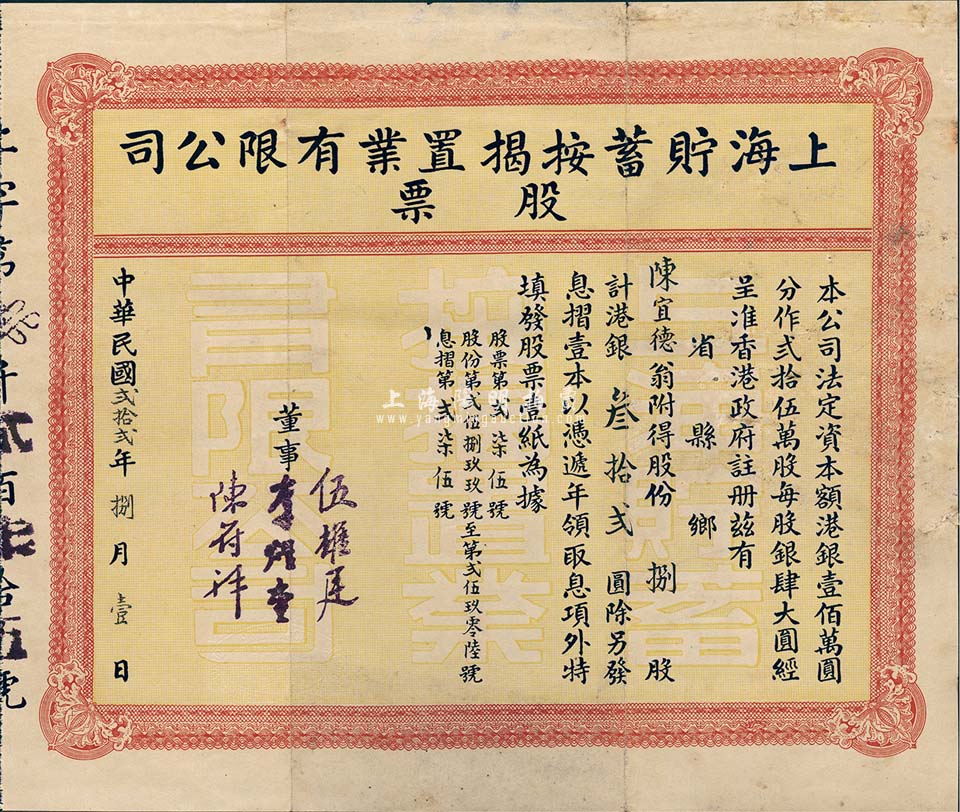 上海貯蓄按揭置業有限公司
股票
本公司法定資本額港銀壹佰萬圓
分作弍拾伍萬股每股銀肆大圓經
呈准香港政府註册茲有
省縣鄉
陳宜德翁附得股份捌股
計港銀叁拾弍圓除另發
息摺壹本以憑遞年領取息項外特
填發股票壹紙為據
股票第弍柒伍號
股份第弍伍捌玖玖號至第弍伍玖零陸號
息摺第弍柒伍號
董事
伍雄廷
陳符祥
中華民國弍拾弍年捌月壹日
上海陽明拍賣